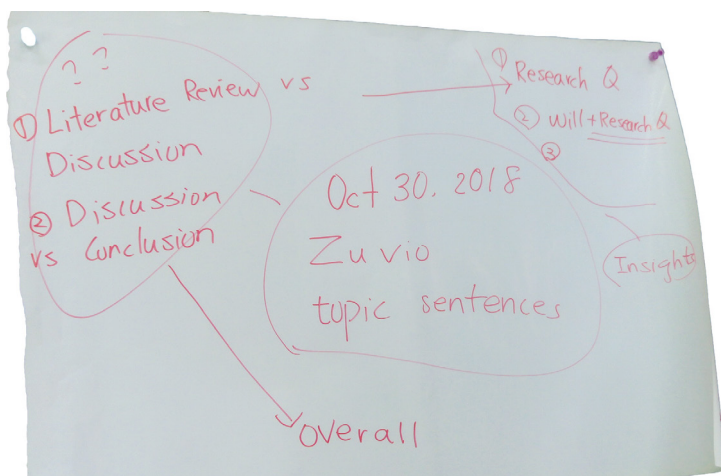 ? ?
① Literature Review vs
Discussion
② Discussion
vs Conclusion
① Research Q
② Will + Research Q
③
Oct 30. 2018
Zuvio
topic sentences
Insights
overall